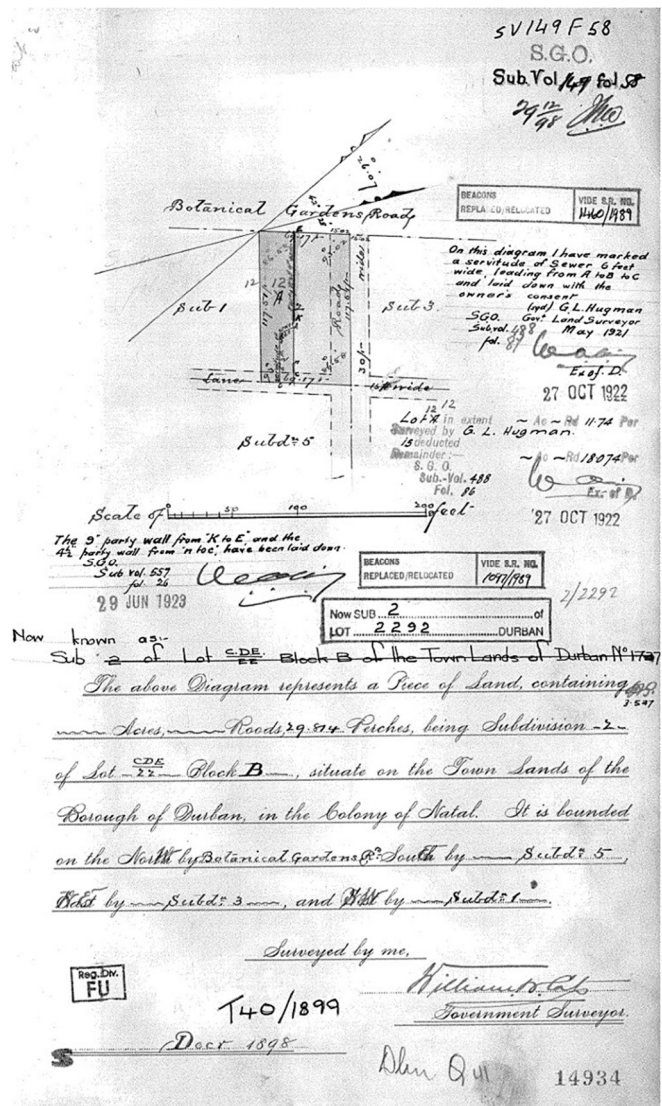 SV149 F 58
S.G.O.
Sub. Vol 149 fol 58
29 12/98
Botanical Gardens Road
BEACONS
REPLACED/RELOCATED
VIDE S.R. NO.
1460/1989
On this diagram I have marked
a servitude of Sewer 6 feet
wide, leading from A to B to C
and laid down with the
owner's consent
(sgd) G.L. Hugman
S.G.O. Govt Land Surveyor
Sub vol. 488 May 1921
fol. 87
Ex of D.
27 OCT 1922
Sub 1
12
A
Road
Sub 3.
Lane
wide
Subdn 5
12 12
Lot A in extent ~ Ac ~ Rd 11.74 Per
Surveyed by G. L. Hugman.
is deducted
Remainder :— ~ Ac ~ Rd 18.074 Per
S. G. O.
Sub.-Vol. 488
Fol. 86
Ex. of D.
27 OCT 1922
Scale of 50 100 200 feet
The 9" party wall from "K to E" and the
4½ party wall from "n to c", have been laid down.
S.G.O.
Sub vol. 557
fol. 26
29 JUN 1923
BEACONS
REPLACED/RELOCATED
VIDE S.R. NO.
1097/1989
2/2292
Now SUB 2 of
LOT 2292 DURBAN
Now known as:-
Sub 2 of Lot C.DE./22 Block B of the Town Lands of Durban No 1737
The above Diagram represents a Piece of Land, containing
3.597
Acres, Roods, 29.814 Perches, being Subdivision -2-
of Lot CDE/22 Block B, situate on the Town Lands of the
Borough of Durban, in the Colony of Natal. It is bounded
on the North by Botanical Gardens Rd South by Subdn 5,
East by Subdn 3, and West by Subdn 1.
Surveyed by me,
Reg. Div.
FU
T40/1899
Government Surveyor.
Decr 1898
S
14934